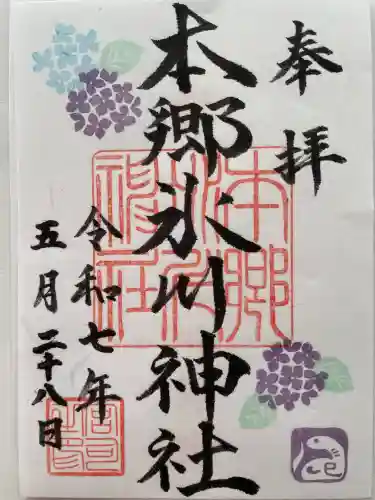 奉拝
本郷氷川神社
令和七年
五月二十八日
本郷氷川神社
巳